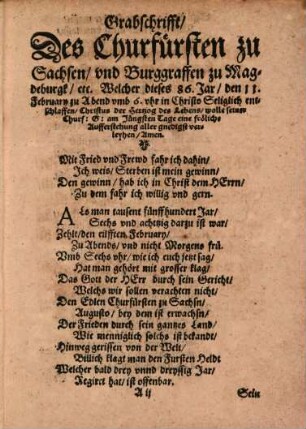 Grabschrifft/
Des Churfürsten zu
Sachsen/ vnd Burggraffen zu Mag-
deburgk/ etc. Welcher dieses 86. Jar/ den 11.
February zu Abend vmb 6. vhr in Christo Seliglich ent-
schlaffen/ Christus der Hertzog des Lebens wolle seiner
Churf: G: am Jüngsten Tage eine frölichs
Aufferstehung aller gnedigst ver-
leyhen/ Amen.
MIt Fried vnd Frewd fahr ich dahin/
Ich weis/ Sterben ist mein gewinn/
Den gewinn/ hab ich in Christ dem HErrn/
Zu dem fahr ich willig vnd gern.
ALs man tausent fünffhundert Jar/
Sechs vnd achtzig darzu ist war/
Zehlt/ den eilfften February/
Zu Abends/ vnd nicht Morgens frü.
Vmb Sechs vhr/ wie ich euch jetzt sag/
Hat man gehört mit grosser klag/
Das Gott der HErr durch sein Gericht/
Welchs wir sollen verachten nicht/
Den Edlen Churfürsten zu Sachsn/
Augusto/ bey dem ist erwachsn/
Der Frieden durch sein gantzes Land/
Wie menniglich solchs ist bekandt/
Hinweg gerissen von der Welt/
Billich klagt man den Fursten Heldt
Welcher bald drey vnnd dreyssig Jar/
Regirt hat/ ist offenbar.
A ij
Sein